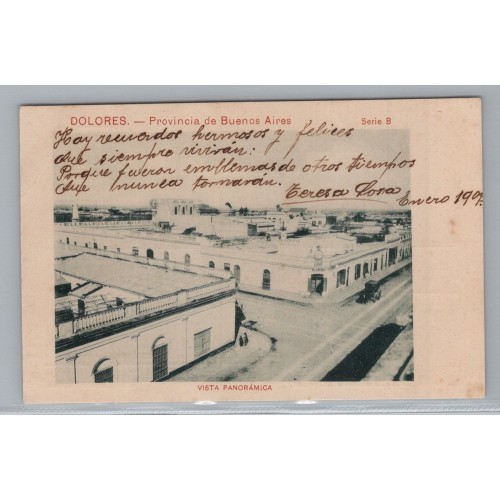 DOLORES. — Provincia de Buenos Aires Serie B
Hay recuerdos hermosos y felices
Que siempre vivirán:
Porque fueron emblemas de otros tiempos
Que nunca tornarán.
Teresa
Enero 190
VISTA PANORÁMICA